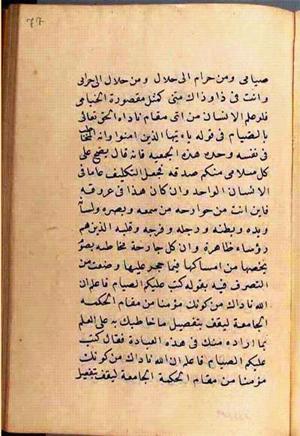 ٧٧
صيامى ومن حرام الى حلال ومن حلال الى حرام
وانت فى ذا وذاك منى كمثل مقصورة الخيامى
فلو علم الانسان من اى مقام ناداه الحق تعالى
بالصيام فى قوله يا ايها الذين امنوا وانه المخاطب
فى نفسه وحده هذه الجمعية فانه قال يصبح على
كل سلامى منكم صدقة فجعل التكليف عاما فى
الانسان الواحد وان كان هذا فى عروقه
فاين انت من جوارحه من سمعه وبصره ولسانه
ويده وبطنه ورجله وفرجه وقلبه الذين هم
رؤساء ظاهره وان كل جارحة مخاطبة بصوم
يخصها من امساكها فيما حجر عليها ومنعت من
التصرف فيه بقوله كتب عليكم الصيام فاعلم ان
الله ناداك من كونك مؤمنا من مقام الحكمة
الجامعة لتقف بتفصيل ما خاطبك به على العلم
بما اراده منك فى هذه العبادة فقال كتب
عليكم الصيام فاعلم ان الله ناداك من كونك
مؤمنا من مقام الحكمة الجامعة لتقف بتفصيل